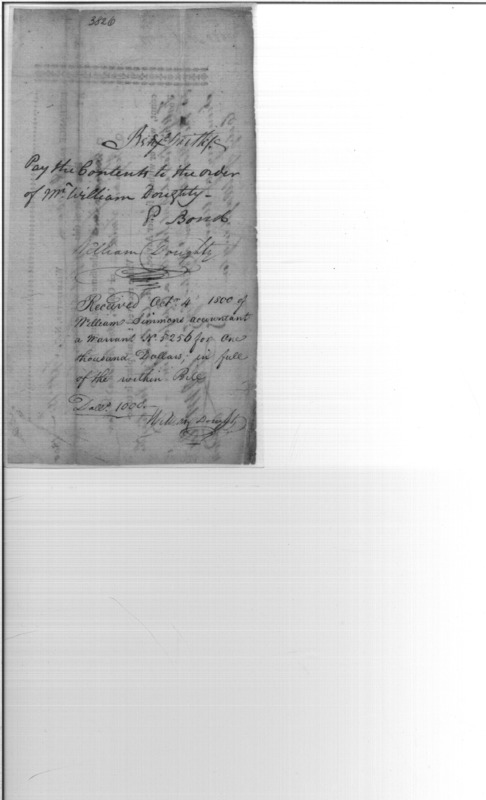 3826
Pay the Contents to the order
of Mr. William Doughty—
P. Bond
William Doughty
Received Octr. 4 1800 of
William Simmons accountant
a Warrant No 5256 for One
thousand Dollars, in full
of the within Bill
Dolls. 1000.—
William Doughty